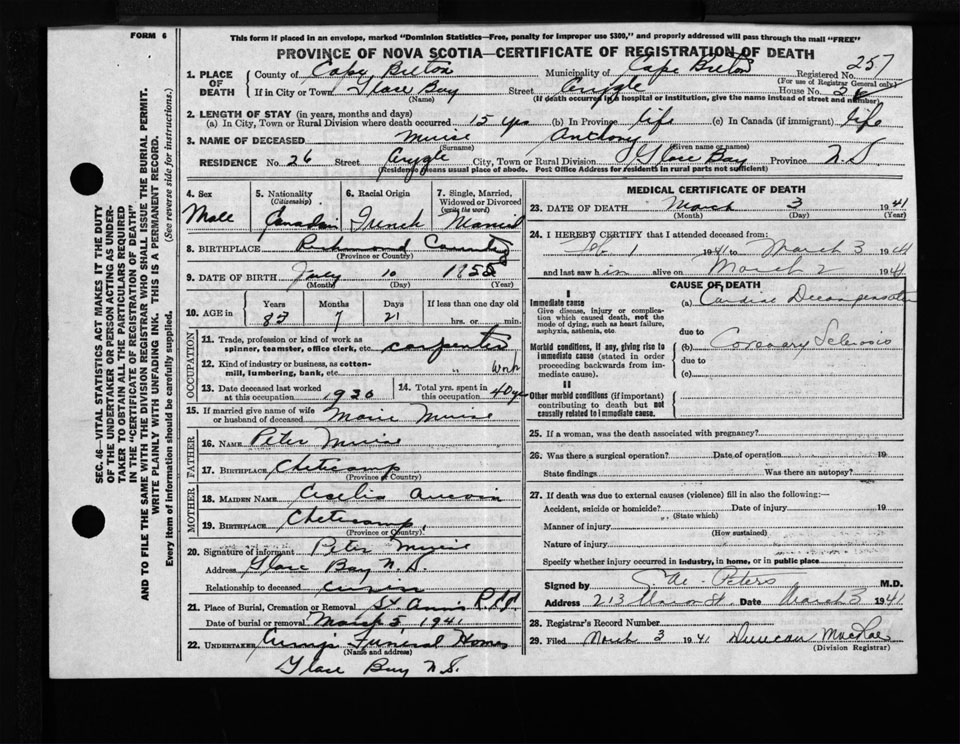 FORM 6
This form if placed in an envelope, marked "Dominion Statistics—Free, penalty for improper use $300," and properly addressed will pass through the mail "FREE"
PROVINCE OF NOVA SCOTIA—CERTIFICATE OF REGISTRATION OF DEATH
257
1. PLACE OF DEATH County of Cape Breton Municipality of Cape Breton Registered No.
(For use of Registrar General only)
If in City or Town Glace Bay Street Argyle House No.
(Name) (If death occurred in a hospital or institution, give the name instead of street and number)
2. LENGTH OF STAY (in years, months and days)
(a) In City, Town or Rural Division where death occurred 15 yrs (b) In Province life (c) In Canada (if immigrant) life
3. NAME OF DECEASED Muise Anthony
(Surname) (Given name or names)
RESIDENCE No. 26 Street Argyle City, Town or Rural Division Glace Bay Province N.S
(Residence means usual place of abode. Post Office Address for residents in rural parts not sufficient)
4. Sex Male
5. Nationality (Citizenship) Canadian
6. Racial Origin French
7. Single, Married, Widowed or Divorced (write the word) Married
8. BIRTHPLACE Richmond County
(Province or County)
9. DATE OF BIRTH July 10
(Month) (Day) (Year)
10. AGE in Years Months Days If less than one day old
7 21 hrs. or min.
OCCUPATION
11. Trade, profession or kind of work as spinner, teamster, office clerk, etc. carpenter
12. Kind of industry or business, as cotton-mill, lumbering, bank, etc. " Work
13. Date deceased last worked at this occupation 1920
14. Total yrs. spent in this occupation 40 yrs
15. If married give name of wife or husband of deceased Marie Muise
FATHER
16. NAME Peter Muise
17. BIRTHPLACE Cheticamp
(Province or Country)
MOTHER
18. MAIDEN NAME Cecelia Aucoin
19. BIRTHPLACE Cheticamp
(Province or Country)
20. Signature of informant Peter Muise
Address Glace Bay N.S.
Relationship to deceased
21. Place of Burial, Cremation or Removal St Anns
Date of burial or removal March 5 1941
22. UNDERTAKER Funeral Home
(Name and address)
Glace Bay N.S.
MEDICAL CERTIFICATE OF DEATH
23. DATE OF DEATH March 3 1941
(Month) (Day) (Year)
24. I HEREBY CERTIFY that I attended deceased from:
Feb 1 1941 to March 3 1941
and last saw him alive on March 2 1941
CAUSE OF DEATH
I
Immediate cause
Give disease, injury or complication which caused death, not the mode of dying, such as heart failure, asphyxia, asthenia, etc.
(a) Cardiac Decompensation
due to
Morbid conditions, if any, giving rise to immediate cause (stated in order proceeding backwards from immediate cause).
(b) Coronary Sclerosis
due to
(c)
II
Other morbid conditions (if important) contributing to death but not causally related to immediate cause.
25. If a woman, was the death associated with pregnancy?
26. Was there a surgical operation? Date of operation 19
State findings Was there an autopsy?
27. If death was due to external causes (violence) fill in also the following:—
Accident, suicide or homicide? Date of injury 19
(State which)
Manner of injury
(How sustained)
Nature of injury
Specify whether injury occurred in industry, in home, or in public place
Signed by Peters M.D.
Address 213 Union St. Date March 3 1941
28. Registrar's Record Number
29. Filed March 3 1941 Duncan MacRae
(Division Registrar)
SEC. 46—VITAL STATISTICS ACT MAKES IT THE DUTY
OF THE UNDERTAKER OR PERSON ACTING AS UNDER-
TAKER TO OBTAIN ALL THE PARTICULARS REQUIRED
IN THE "CERTIFICATE OF REGISTRATION OF DEATH"
AND TO FILE THE SAME WITH THE DIVISION REGISTRAR WHO SHALL ISSUE THE BURIAL PERMIT.
WRITE PLAINLY WITH UNFADING INK. THIS IS A PERMANENT RECORD.
Every item of Information should be carefully supplied. (See reverse side for instructions.)